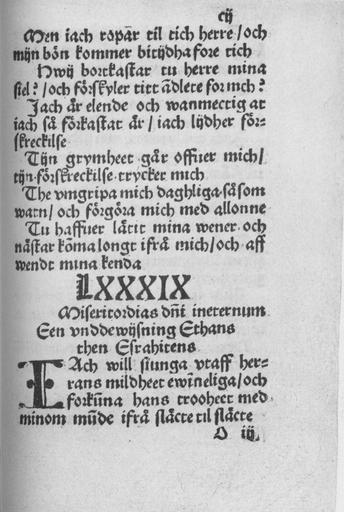 cij
Men iach ropar til tich herre/och
mijn bön kommer bitijdha fore tich
Hwij bortkastar tu herre mina
siel?/och förskyler titt ãdlete for mch?
Jach är elende och wanmectig at
iach så förkastat är/iach lijdher för-
skreckilse
Tijn grymheet går offuer mich/
tijn förskreckilse trycker mich
The vmgripa mich daghliga såsom
watn/och förgöra mich med allonne
Tu haffuer lätit mina wener och
nästar kõma longt ifrå mich/och aff
wendt mina kenda
LXXXIX
Misericordias dñi ineternum
Een vnddewijsning Ethans
then Esrahitens
IAch will siunga vtaff her-
rans mildheet ewĩneliga/och
forkũna hans trooheet med
minom mũde ifrå släcte til släcte
O iij